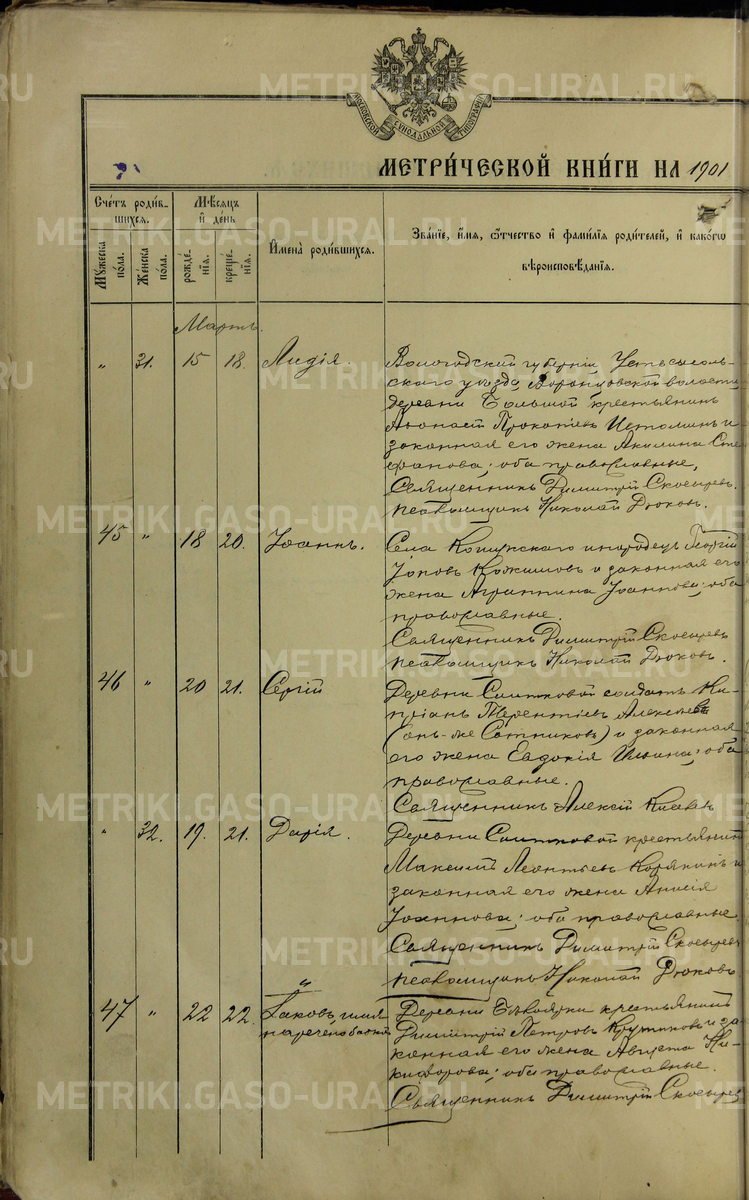 METRIKI.GASO-URAL.RU
МОСКОВСКОЙ СѴНОДАЛЬНОЙ ТИПОГРАФІИ
МЕТРИ́ЧЕСКОЙ КНИ́ГИ НА 1901
Сче́тъ роди́в-
шихся.
Мѣ́сяцъ
и҆ де́нь.
Мꙋ́жеска
по́ла.
Же́нска
по́ла.
рожде́-
нїѧ.
креще́-
нїѧ.
И҆мена̀ роди́вшихся.
Зва́нїе, и҆́мѧ, ѻ҆́тчество и҆ фами́лїѧ роди́телей, и҆ како́гѡ
вѣроисповѣ́данїѧ.
Мартъ.
„ 31. 15 18. Лидія.
Вологодской губерніи, Устьсысоль-
скаго уѣзда, волости,
деревни Большой крестьянинъ
Аѳонасій Прокопіевъ Истоминъ и
законная его жена Акилина Сте-
фанова; оба православные.
Священникъ Димитрій Скосыревъ.
Псаломщикъ Николай Дюковъ.
45 „ 18 20. Іоаннъ.
Села инородецъ Георгій
Іовъ и законная его
жена Агриппина Іоаннова; оба
православные.
Священникъ Димитрій Скосыревъ
Псаломщикъ Николай Дюковъ.
46 „ 20 21. Сергій
Деревни солдатъ Ки-
пріанъ Терентіевъ Алексѣевъ
(онъ-же Сотниковъ) и законная
его жена Евдокія Ильина; оба
православные.
Священникъ Алексій
„ 32. 19. 21. Дарія.
Деревни крестьянинъ
Максимъ Леонтьевъ Корякинъ и
законная его жена Анисія
Іоаннова; оба православные.
Священникъ Димитрій Скосыревъ
Псаломщикъ Николай Дюковъ
47 „ 22 22. Іаковъ, имя
наречено бабкой
Деревни крестьянинъ
Димитрій Петровъ Крутиковъ и за-
конная его жена Августа Ни-
кифорова; оба православные.
Священникъ Димитрій Скосыревъ